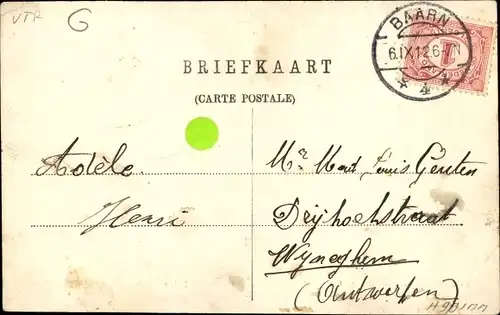 VTR G
BAARN
6.IX.12 6-7N
4
1
BRIEFKAART
(CARTE POSTALE)
Adèle.
Henri
Mr Louis Genten
Drijhoekstraat
Wyneghem
(Antwerpen)